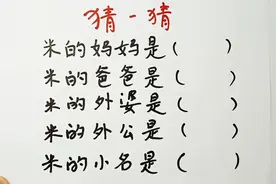 猜-猜
米的妈妈是( )
米的爸爸是( )
米的外婆是( )
米的外公是( )
米的小名是( )